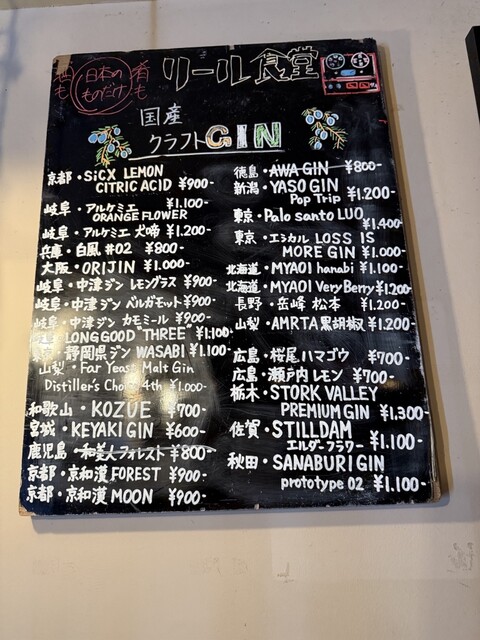 酒も
日本の
ものだけ
肴も
リール食堂
国産
クラフトGIN
京都・SiCX LEMON
CITRIC ACID ¥900-
岐阜・アルケミエ ¥1.100-
ORANGE FLOWER
岐阜・アルケミエ 犬啼 ¥1.200-
兵庫・白風 #02 ¥800-
大阪・ORIJIN ¥1.000-
岐阜・中津ジン レモングラス ¥900-
岐阜・中津ジン ベルガモット ¥900-
岐阜・中津ジン カモミール ¥900-
LONGGOOD "THREE" ¥1.100-
・静岡県ジン WASABI ¥1.100-
山梨・Far Yeast Malt Gin
Distiller's Choice 4th ¥1.000-
和歌山・KOZUE ¥700-
宮城・KEYAKI GIN ¥600-
鹿児島・和美人フォレスト ¥800-
京都・京和漢 FOREST ¥900-
京都・京和漢 MOON ¥900-
徳島・AWA GIN ¥800-
新潟・YASO GIN
Pop Trip ¥1.200-
東京・Palo santo LUO
¥1.400-
東京・エシカル LOSS IS
MORE GIN ¥1.000-
北海道・MYAOI hanabi ¥1.100-
北海道・MYAOI Very Berry ¥1.200-
長野・岳峰 松本 ¥1.200-
山梨・AMRTA黒胡椒 ¥1.200-
広島・桜尾 ハマゴウ ¥700-
広島・瀬戸内レモン ¥700-
栃木・STORK VALLEY
PREMIUM GIN ¥1.300-
佐賀・STILLDAM
エルダーフラワー ¥1.100-
秋田・SANABURI GIN
prototype 02 ¥1.100-